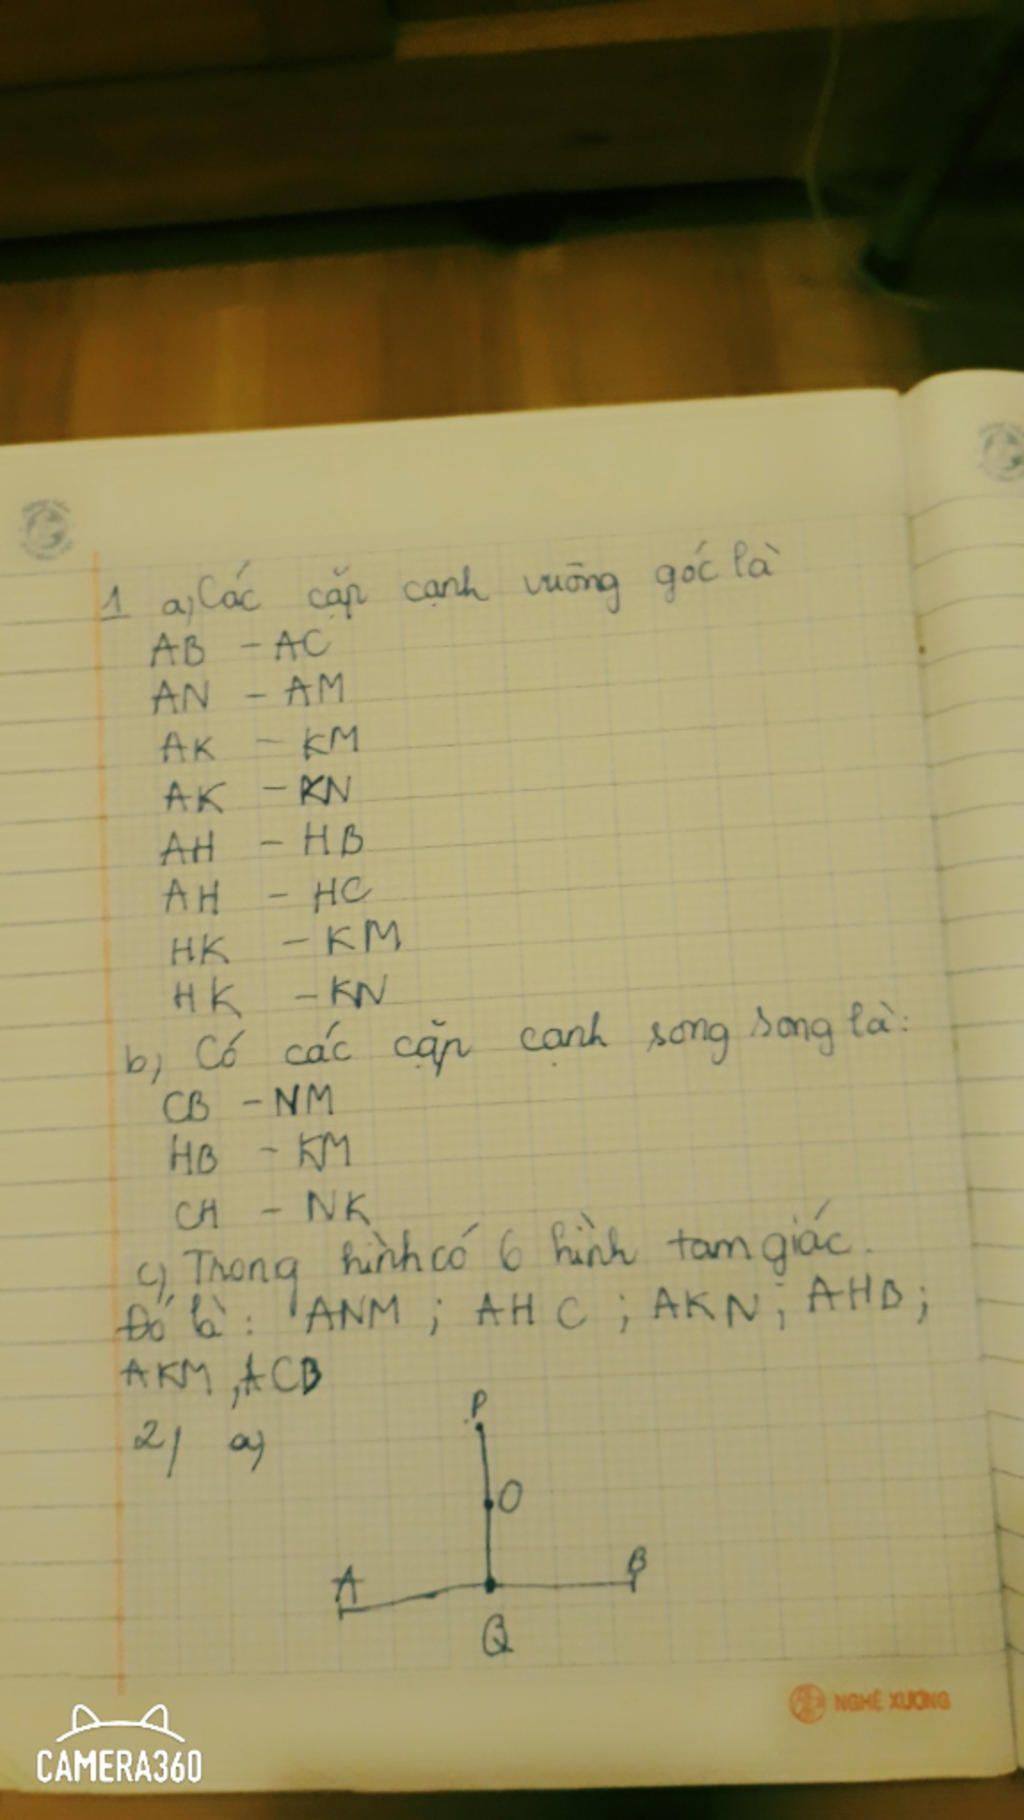 1 a, Các cặp cạnh vuông góc là
AB - AC
AN - AM
AK - KM
AK - KN
AH - HB
AH - HC
HK - KM
HK - KN
b, Có các cặp cạnh song song là:
CB - NM
HB - KM
CH - NK
c, Trong hình có 6 hình tam giác.
Đó là: ANM ; AHC ; AKN ; AHB ;
AKM , ACB
2, a,
P
O
A B
Q
NGHÊ XƯƠNG
CAMERA360